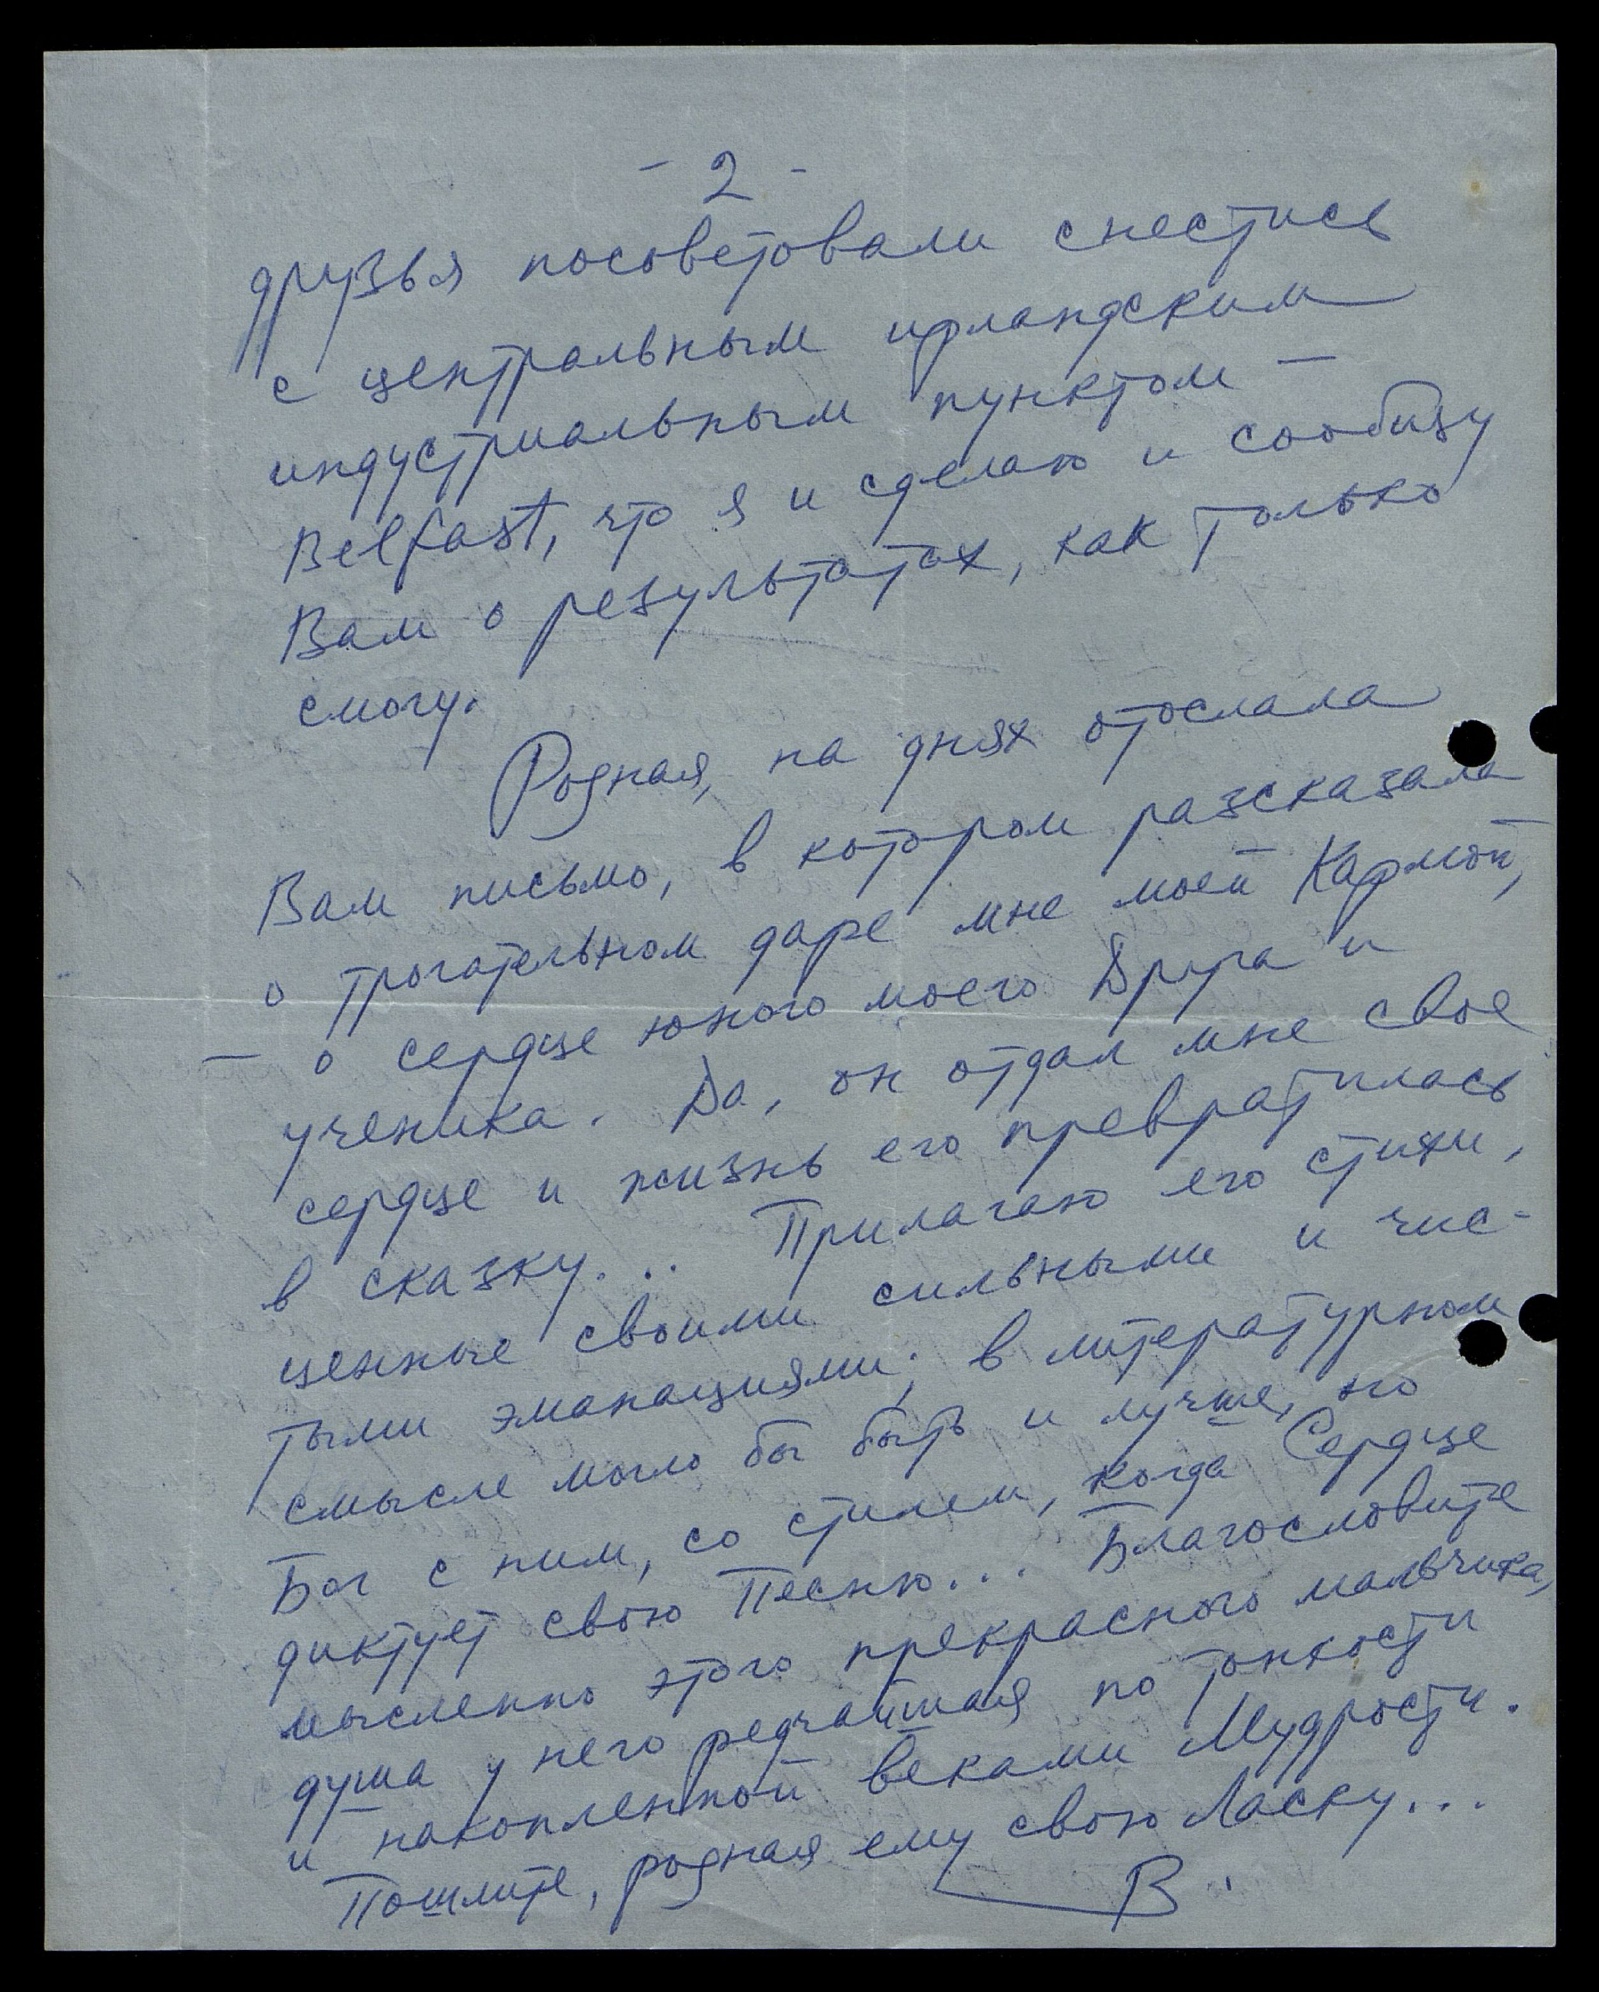 - 2 -
друзья посоветовали снестись
с центральным ирландским
индустриальным пунктом —
Belfast, что я и сделаю и сообщу
Вам о результатах, как только
смогу.
Родная, на днях отослала
Вам письмо, в котором разсказала
о трогательном даре мне моей Кармой,
— о сердце юного моего Друга и
ученика. Да, он отдал мне свое
сердце и жизнь его превратилась
в сказку... Прилагаю его стихи,
ценные своими сильными и чис-
тыми эманациями; в литературном
смысле могло бы быть и лучше, но
Бог с ним, со стилем, когда Сердце
диктует свою Песню... Благословите
мысленно этого прекрасного мальчика,
душа у него редчайшая по тонкости
и накопленной веками Мудрости.
Пошлите, родная ему свою Ласку...
В.